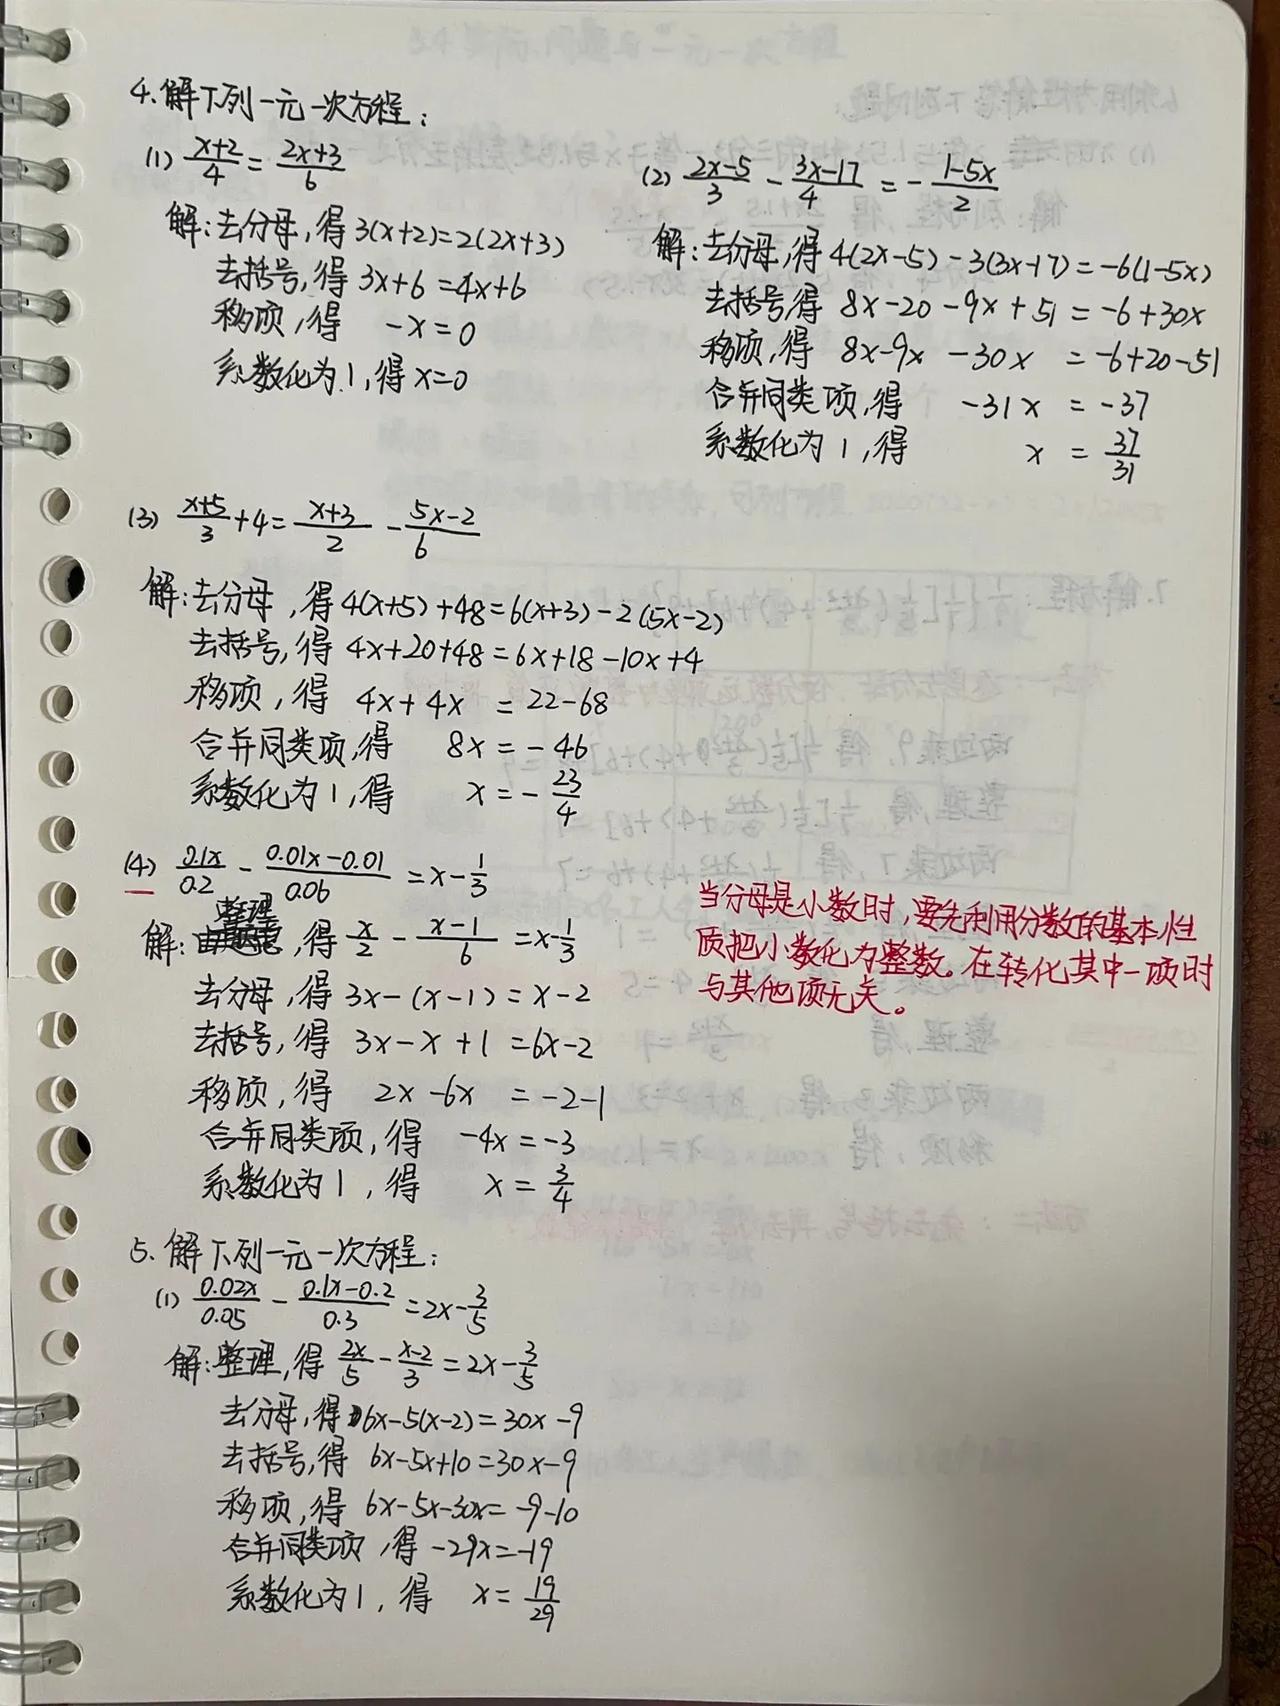 4.解下列一元一次方程:
(1) (x+2)/4 = (2x+3)/6
解:去分母,得 3(x+2)=2(2x+3)
去括号,得 3x+6=4x+6
移项,得 -x=0
系数化为1,得 x=0
(2) (2x-5)/3 - (3x-17)/4 = - (1-5x)/2
解:去分母,得 4(2x-5)-3(3x-17)=-6(1-5x)
去括号,得 8x-20-9x+51=-6+30x
移项,得 8x-9x-30x=-6+20-51
合并同类项,得 -31x=-37
系数化为1,得 x=37/31
(3) (x+5)/3 +4= (x+3)/2 - (5x-2)/6
解:去分母,得 4(x+5)+48=6(x+3)-2(5x-2)
去括号,得 4x+20+48=6x+18-10x+4
移项,得 4x+4x=22-68
合并同类项,得 8x=-46
系数化为1,得 x=-23/4
(4) 0.1x/0.2 - (0.01x-0.01)/0.06 =x-1/3
解:整理,得 x/2 - (x-1)/6 =x-1/3
去分母,得 3x-(x-1)=x-2
去括号,得 3x-x+1=6x-2
移项,得 2x-6x=-2-1
合并同类项,得 -4x=-3
系数化为1,得 x=3/4
当分母是小数时,要先利用分数的基本性
质把小数化为整数。在转化其中一项时
与其他项无关。
5.解下列一元一次方程:
(1) 0.02x/0.05 - (0.1x-0.2)/0.3 =2x-3/5
解:整理,得 2x/5 - (x-2)/3 =2x-3/5
去分母,得 6x-5(x-2)=30x-9
去括号,得 6x-5x+10=30x-9
移项,得 6x-5x-30x=-9-10
合并同类项,得 -29x=-19
系数化为1,得 x=19/29